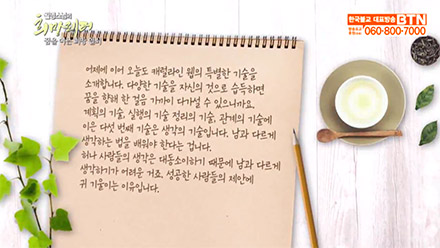 한국불교 대표방송 BTN
060-800-7000
희망편지
어제에 이어 오늘도 캐럴라인 웹의 특별한 기술을
소개합니다. 다양한 기술을 자신의 것으로 습득하면
꿈을 향해 한 걸음 가까이 다가설 수 있으니까요.
계획의 기술, 실행의 기술 정리의 기술, 관계의 기술에
이은 다섯 번째 기술은 생각의 기술입니다. 남과 다르게
생각하는 법을 배워야 한다는 겁니다.
허나 사람들의 생각은 대동소이하기 때문에 남과 다르게
생각하기가 어려운 거죠. 성공한 사람들의 제안에
귀 기울이는 이유입니다.